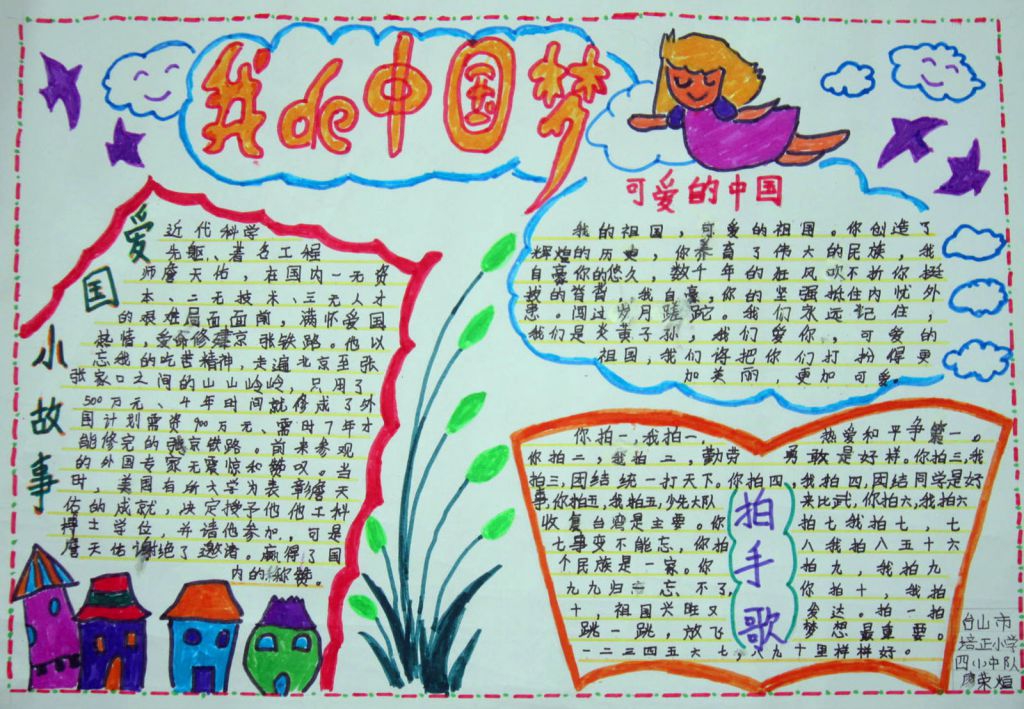 我de中国梦
爱国小故事
近代科学
先驱、著名工程
师詹天佑，在国内一无资
本、二无技术、三无人才
的艰难局面面前，满怀爱国
热情，受命修建京张铁路。他以
忘我的吃苦精神，走遍北京至张
张家口之间的山山岭岭，只用了
500万元、4年时间就修成了外
国计划需资900万元、需时7年才
能修完的京铁路。前来参观
的外国专家无震惊和
时，美国有所大学为表彰詹天
佑的成就，决定授予他他工科
博士学位，并请他参加，可是
詹天佑谢绝了邀请。赢得了国
内的称赞。
可爱的中国
我的祖国，可爱的祖国。你创造了
辉煌的历史，你养育了伟大的民族，我
自豪你的悠久，数千年的狂风吹不折你挺
拔的脊背，我自豪，你的坚强抵住内忧外
患。闯过岁月蹉跎。我们永远记住，
我们是炎黄子孙，我们爱你，可爱的
祖国，我们将把你们打扮得更
加美丽，更加可爱。
拍手歌
你拍一，我拍一，
你拍二，我拍二，勤劳
拍三，团结统一打天下。你拍四
事，你拍五，我拍五，少先大队
收复台湾是主要。你
七事变不能忘，你拍
个民族是一家。你
九九归 忘不了，
十，祖国兴旺又
跳一跳，放飞
一二三四五六七，
热爱和平争第一。
勇敢是好样。你拍三，我
，我拍四，团结同学是好
来比武，你拍六，我拍六
拍七我拍七，七
八我拍八五十六
拍九，我拍九
你拍十，我拍
发达。拍一拍
梦想最重要。
八九十里样样好。
台山市
培正小学
四小中队
荣烜